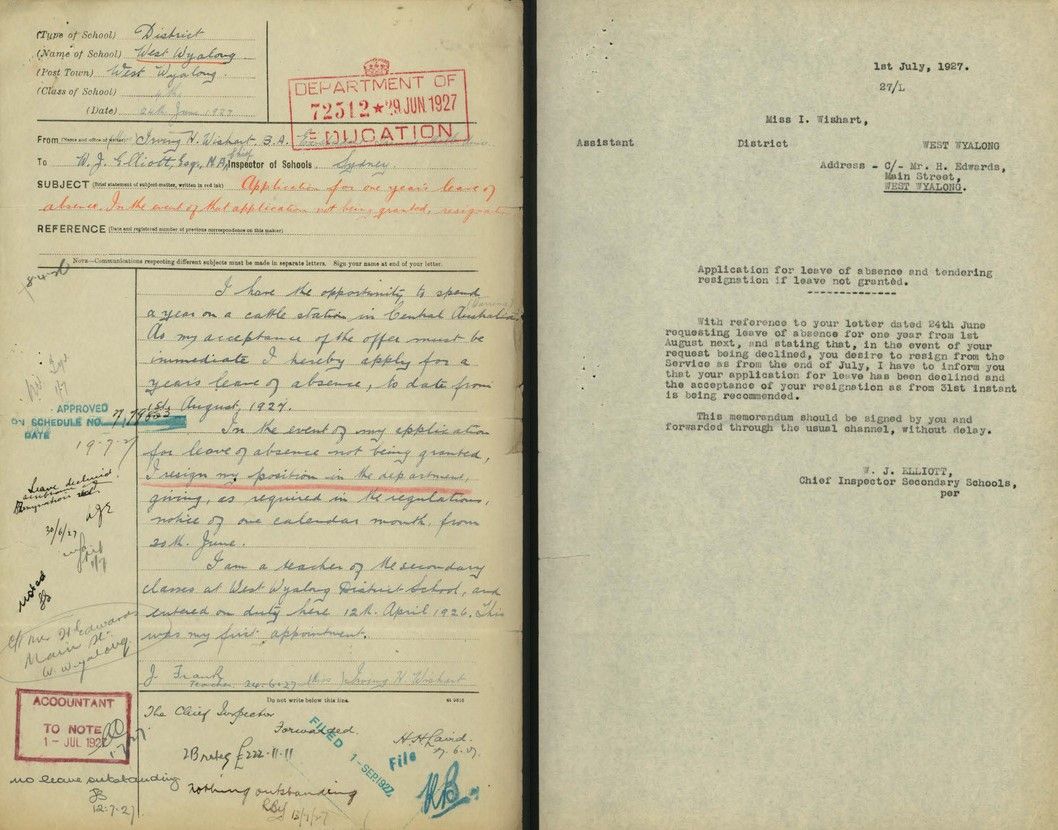 (Type of School) District
(Name of School) West Wyalong
(Post Town) West Wyalong.
(Class of School) 4th
(Date) 24th June 1927
DEPARTMENT OF
72512 ★ 29 JUN 1927
EDUCATION
From (Name and office of writer) H. Wishart, B.A.
To W. J. Elliott, Esq., M.A., Chief Inspector of Schools, Sydney.
SUBJECT (Brief statement of subject-matter, written in red ink) Application for one year's leave of
absence. In the event of that application not being granted, resignation
REFERENCE (Date and registered number of previous correspondence on this matter)
NOTE—Communications respecting different subjects must be made in separate letters. Sign your name at end of your letter.
I have the opportunity to spend
a year on a cattle station in Central Australia
As my acceptance of the offer must be
immediate I hereby apply for a
years leave of absence, to date from
1st August, 1927.
In the event of my application
for leave of absence not being granted,
I resign my position in the department,
giving, as required in the regulations,
notice of one calendar month, from
30th June.
I am a teacher of the secondary
classes at West Wyalong District School, and
entered on duty here 12th April 1926. This
was my first appointment.
J Frank
Teacher 24-6-27 (Miss) H Wishart
APPROVED
ON SCHEDULE NO.
DATE
19-7-27
Leave declined
30/6/27
noted
C/o Mr H Edwards
Main St.
W. Wyalong
ACCOUNTANT
TO NOTE
1 - JUL 1927
no leave outstanding
12-7-27
Do not write below this line.
The Chief Inspector
Forwarded.
£222-11-11
FILED 1 - SEP 1927
File
nothing outstanding
13/7/27
RB
1st July, 1927.
27/L
Miss I. Wishart,
Assistant District WEST WYALONG
Address - C/- Mr. H. Edwards,
Main Street,
WEST WYALONG.
Application for leave of absence and tendering
resignation if leave not granted.
-------------
With reference to your letter dated 24th June
requesting leave of absence for one year from 1st
August next, and stating that, in the event of your
request being declined, you desire to resign from the
Service as from the end of July, I have to inform you
that your application for leave has been declined and
the acceptance of your resignation as from 31st instant
is being recommended.
This memorandum should be signed by you and
forwarded through the usual channel, without delay.
W. J. ELLIOTT,
Chief Inspector Secondary Schools,
per